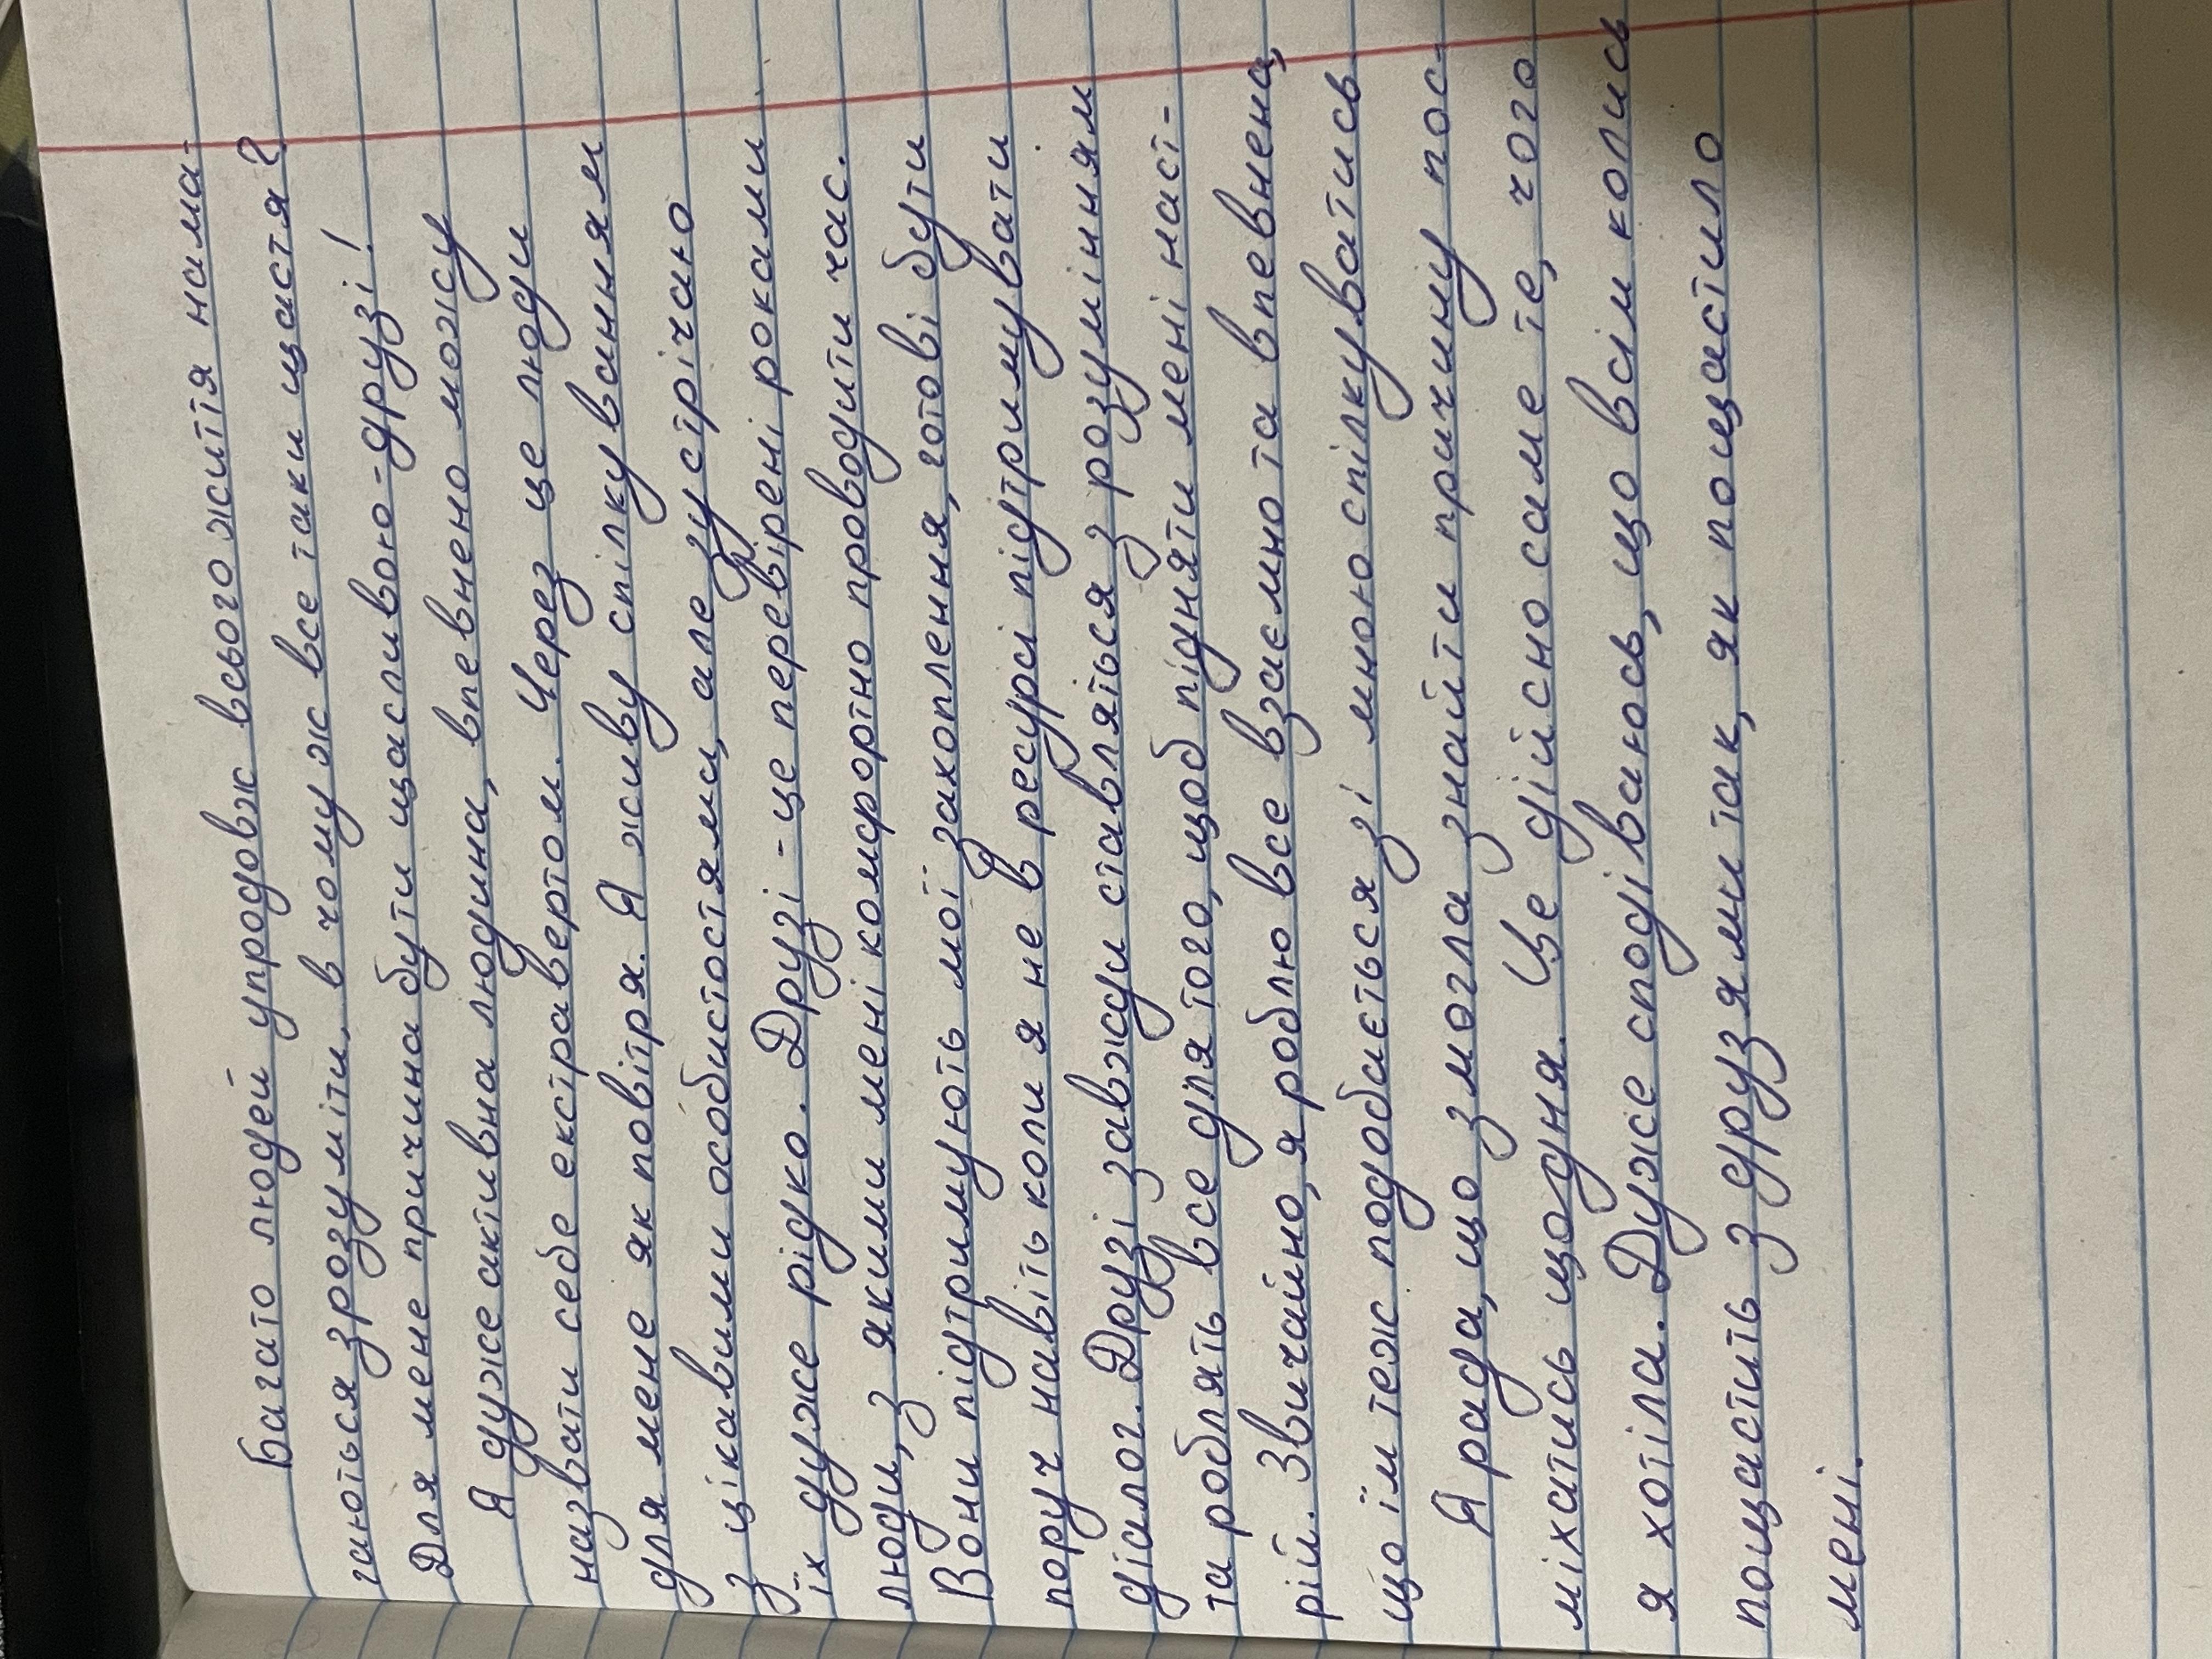 Багато людей упродовж всього життя нама-
гаються зрозуміти, в чому ж все таки щастя?
Для мене причина бути щасливою-друзі!
Я дуже активна людина, впевнено можу
назвати себе екстравертом. Через це люди
для мене як повітря. Я живу спілкуванням
з цікавими особистостями, але зустрічаю
їх дуже рідко. Друзі - це перевірені роками
люди, з якими мені комфортно проводити час.
Вони підтримують мої захоплення, готові бути
поруч навіть коли я не в ресурсі підтримувати
діалог. Друзі завжди ставляться з розумінням
та роблять все для того, щоб підняти мені наст-
рій. Звичайно, я роблю все взаємно та впевнена,
що їм теж подобається зі мною спілкуватись.
Я рада, що змогла знайти причину пос-
міхатись щодня. Це дійсно саме те, чого
я хотіла. Дуже сподіваюсь, що всім колись
пощастить з друзями так, як пощастило
мені.